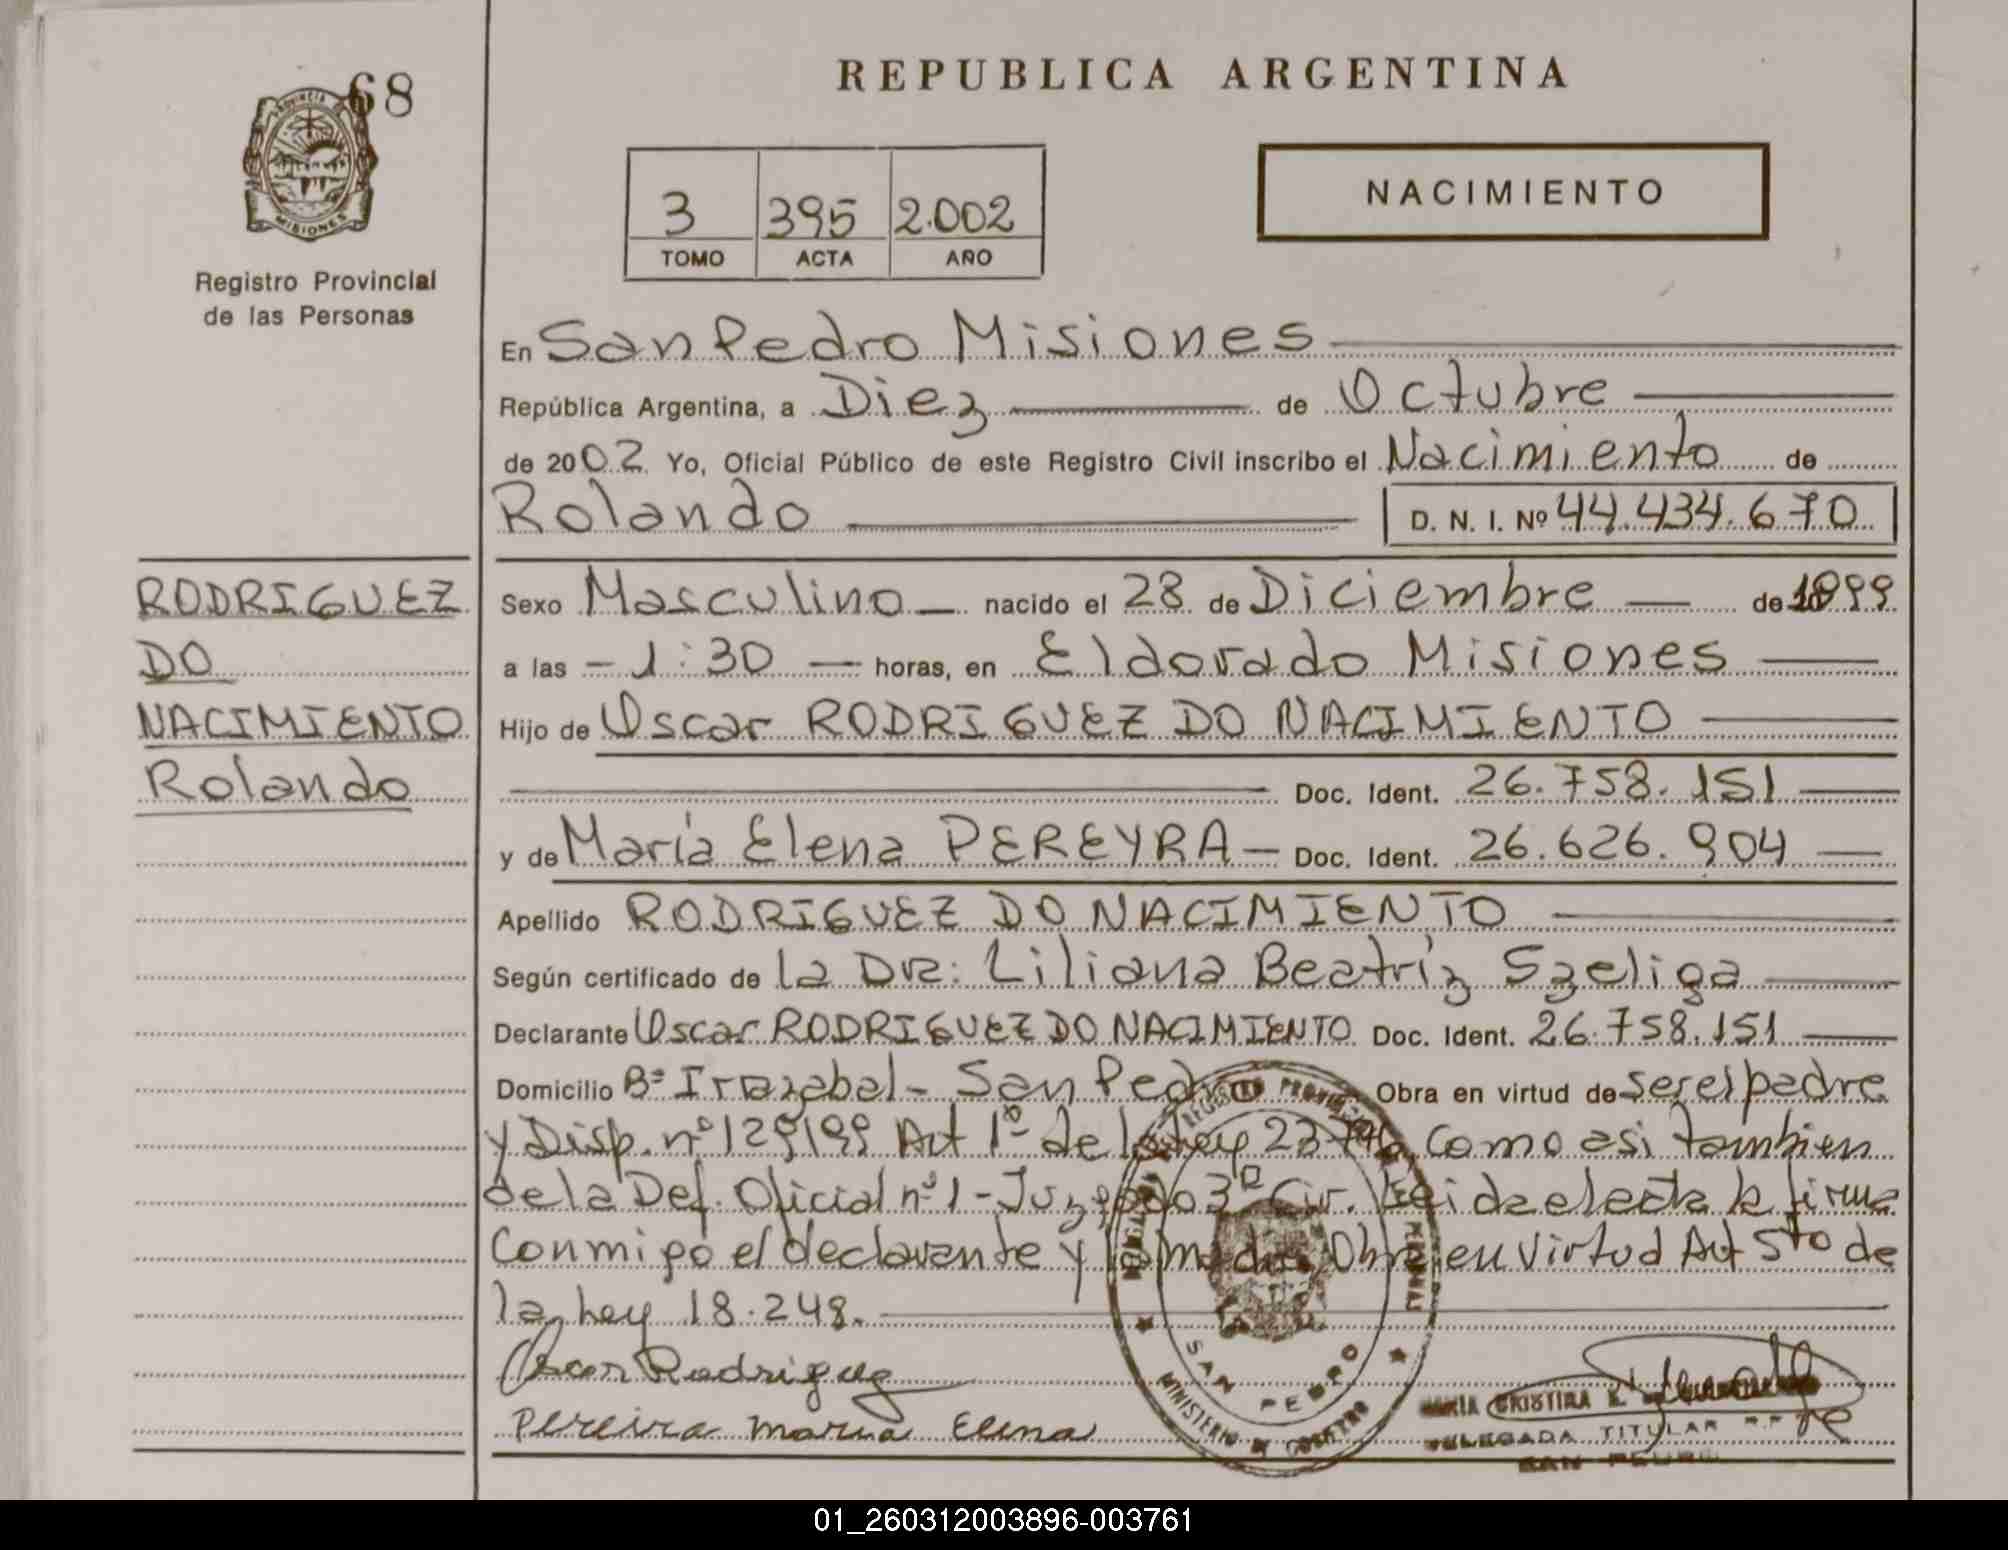 68
PROVINCIA DE
MISIONES
Registro Provincial
de las Personas
REPUBLICA ARGENTINA
3 395 2.002
TOMO ACTA AÑO
NACIMIENTO
En San Pedro Misiones
República Argentina, a Diez de Octubre
de 2002 Yo, Oficial Público de este Registro Civil inscribo el Nacimiento de
Rolando D. N. I. Nº 44.434.670
RODRIGUEZ
DO
NACIMIENTO
Rolando
Sexo Masculino nacido el 28 de Diciembre de 1999
a las - 1:30 - horas, en Eldorado Misiones
Hijo de Oscar RODRIGUEZ DO NACIMIENTO
Doc. Ident. 26.758.151
y de María Elena PEREYRA - Doc. Ident. 26.626.904
Apellido RODRIGUEZ DO NACIMIENTO
Según certificado de la Dra: Liliana Beatríz Szeliga
Declarante Oscar RODRIGUEZ DO NACIMIENTO Doc. Ident. 26.758.151
Domicilio Bº Irrazabal - San Pedro Obra en virtud de ser el padre
y Disp. nº 129/99 Art 1º de la Ley 23776 Como asi tambien
de la Def. Oficial nº 1 - Juzgado 3ª Cir. Leida el acta la firma
Conmigo el declarante y la madre Obra en virtud Art 5to de
la Ley 18.248.
Oscar Rodriguez
Pereira Maria Elena
REGISTRO PROVINCIAL
SAN PEDRO
MINISTERIO DE GOBIERNO
MARIA CRISTINA
DELEGADA TITULAR R.P.
SAN PEDRO
01_260312003896-003761